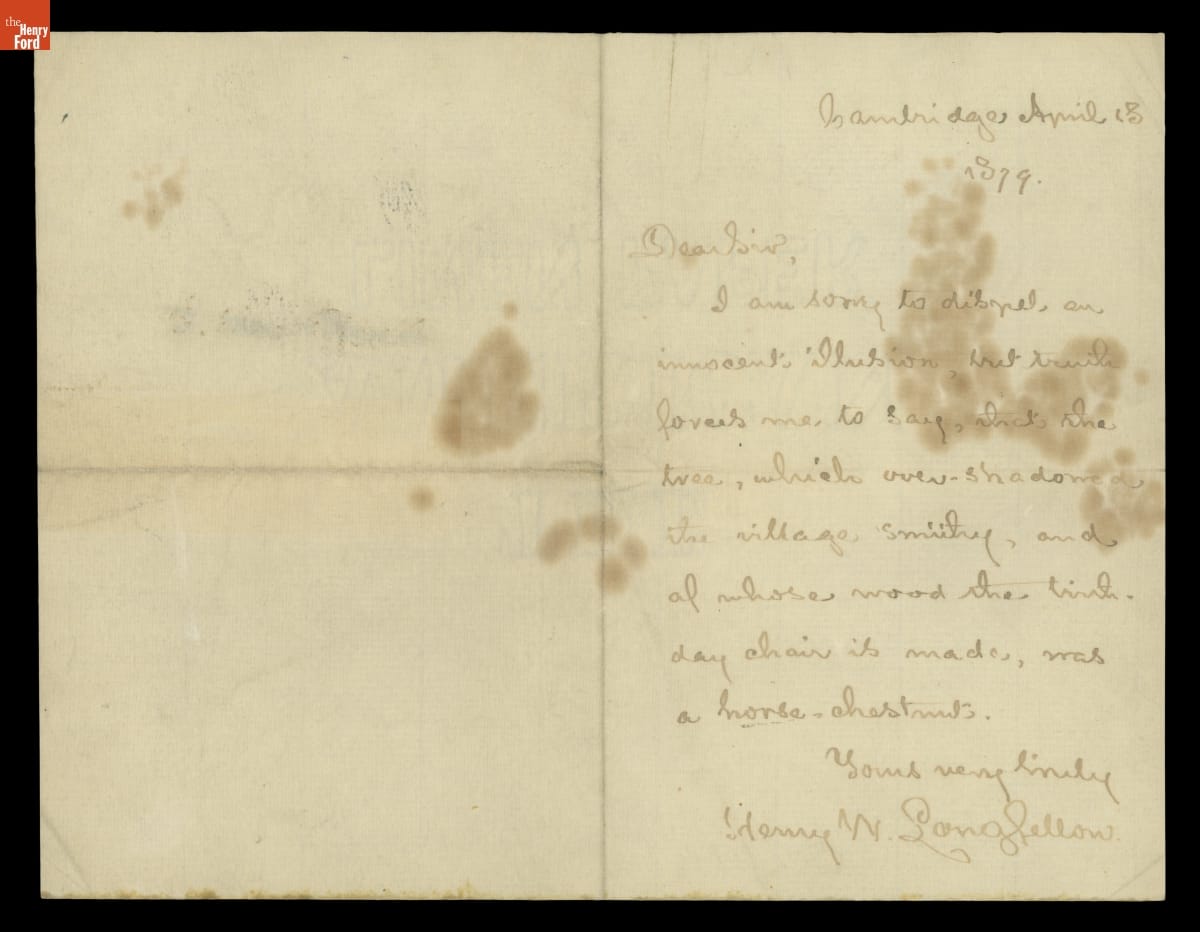 the
Henry
Ford
Cambridge April 13
1879.
Dear Sir,
I am sorry to dispel an
innocent illusion, but truth
forces me to say, that the
tree, which over-shadowed
the village smithy, and
of whose wood the birth-
day chair is made, was
a horse-chestnut.
Yours very truly
Henry W. Longfellow.